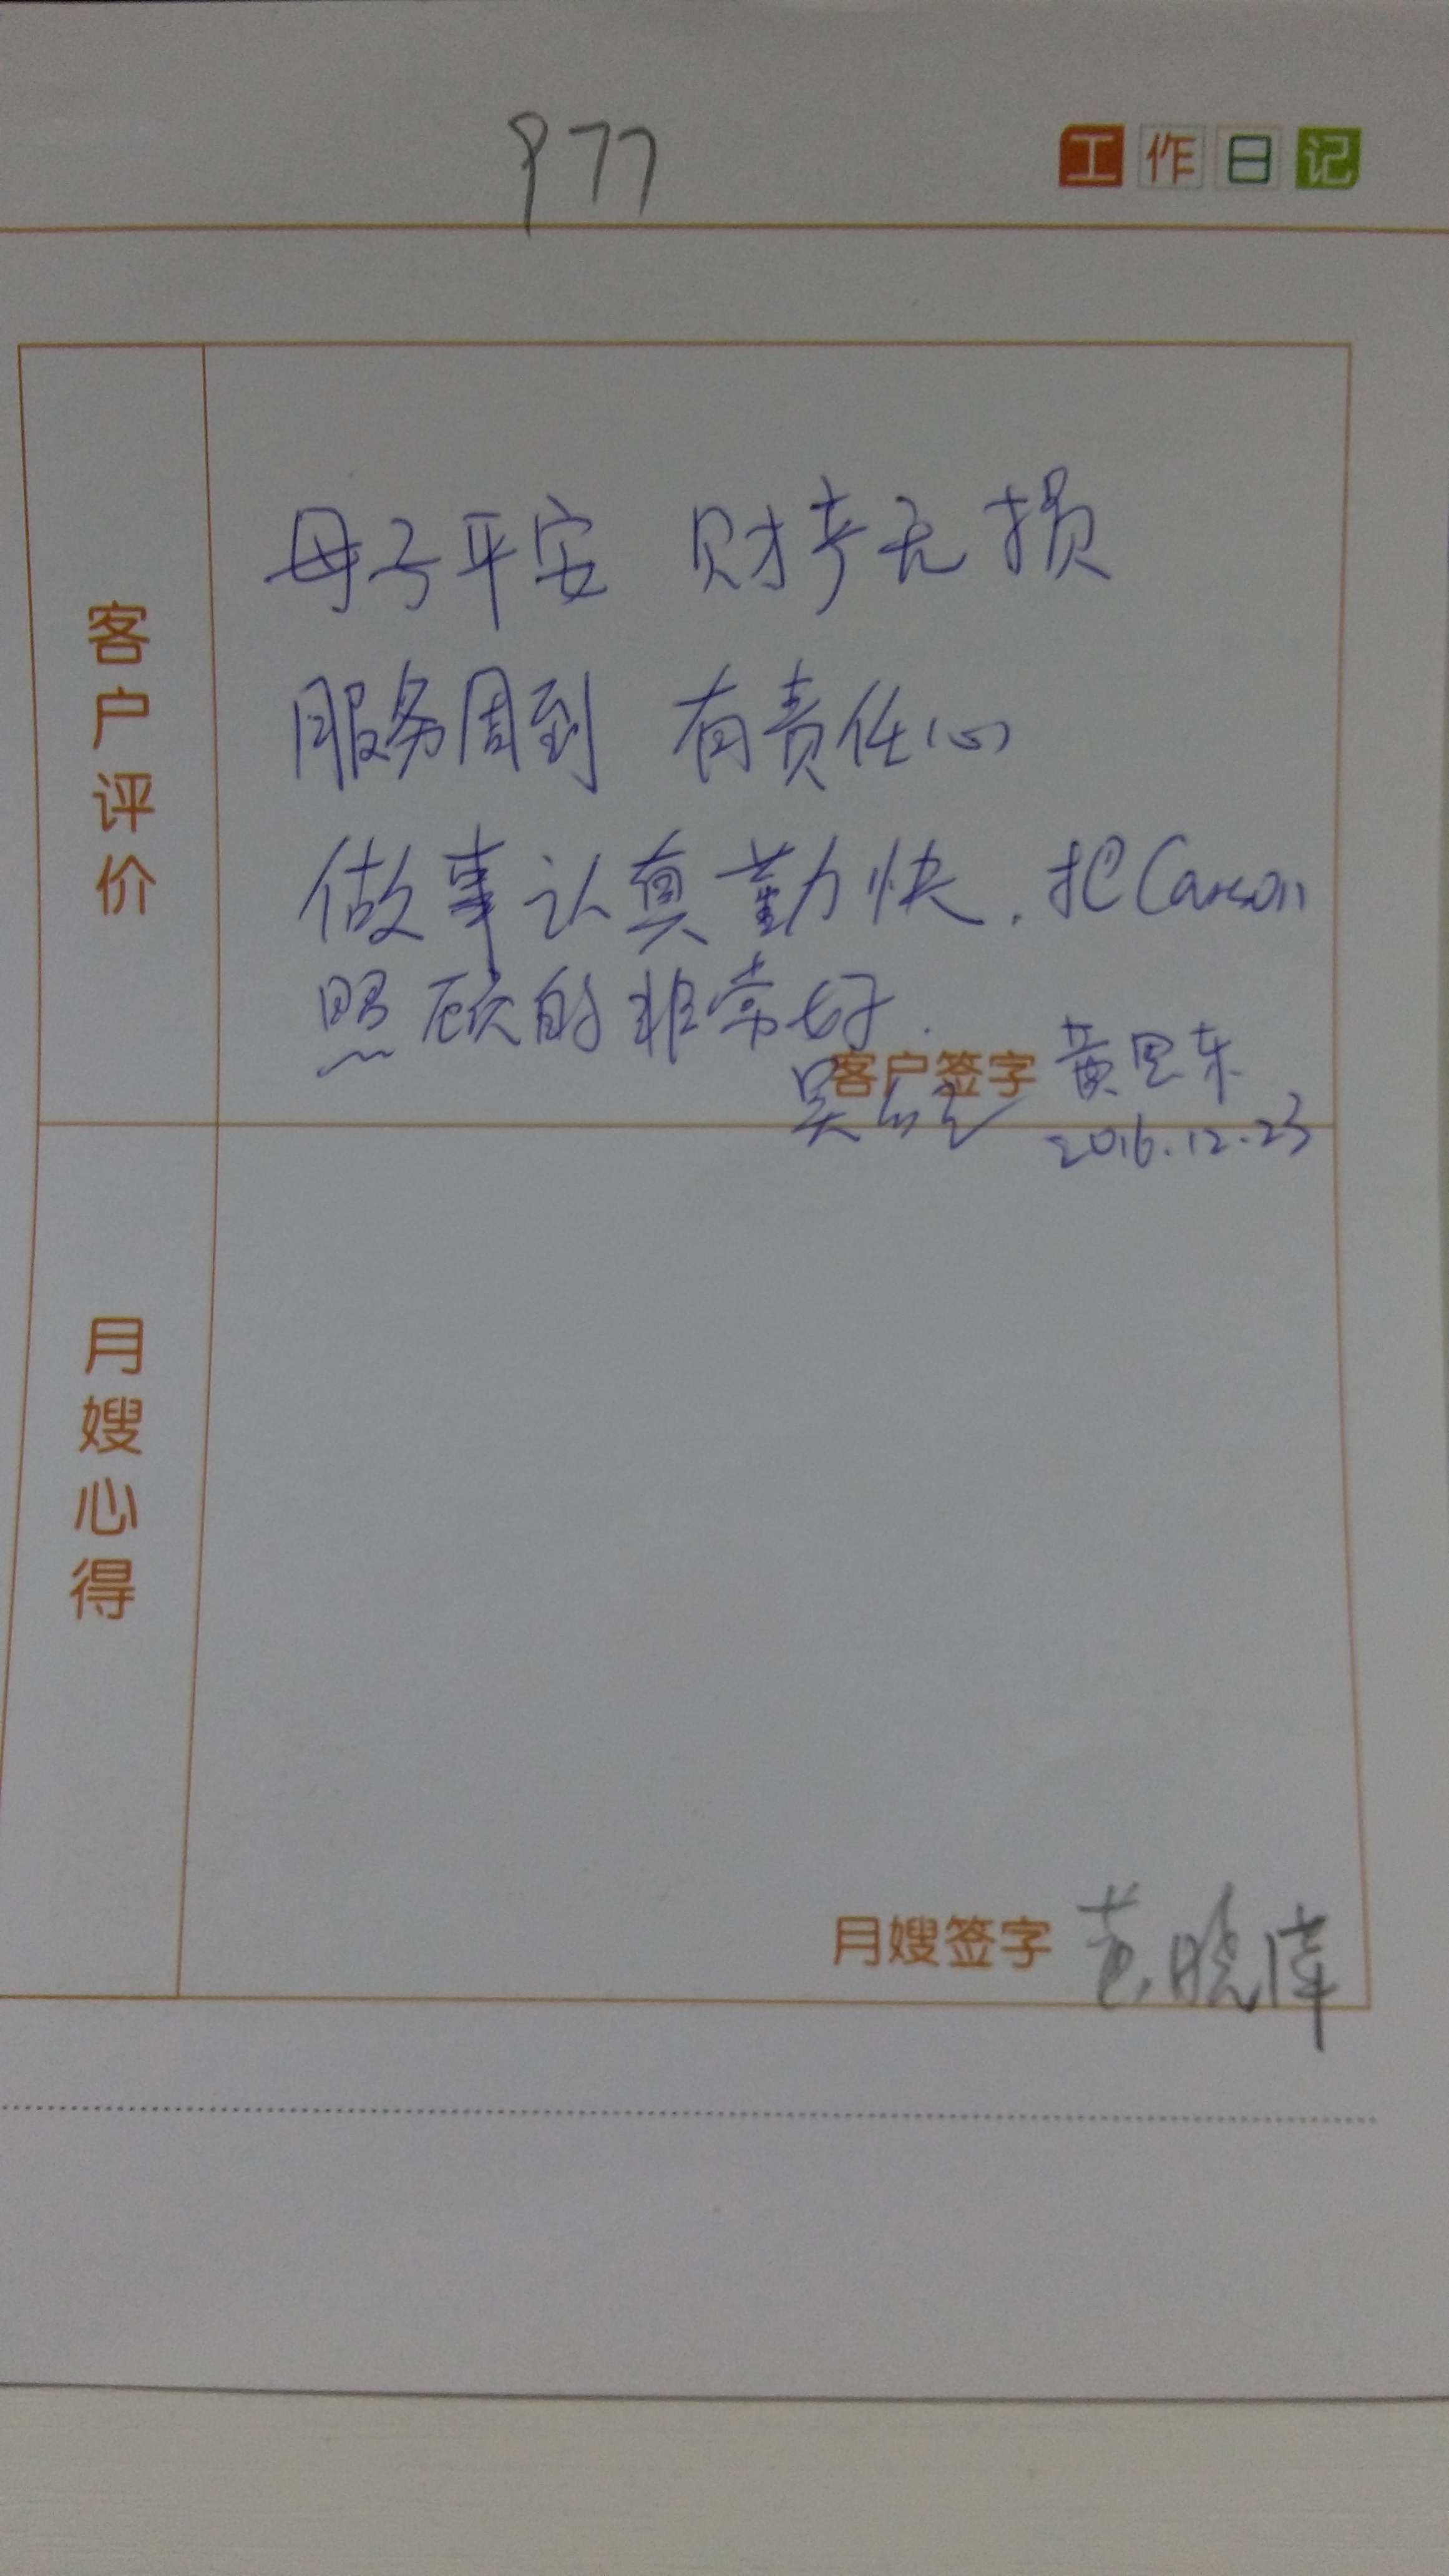 977
工作日记
客户评价
母子平安 财产无损
服务周到 有责任心
做事认真勤快.把Carson
照顾的非常好.
客户签字 黄思东
吴
2016.12.23
月嫂心得
月嫂签字 黄晓萍